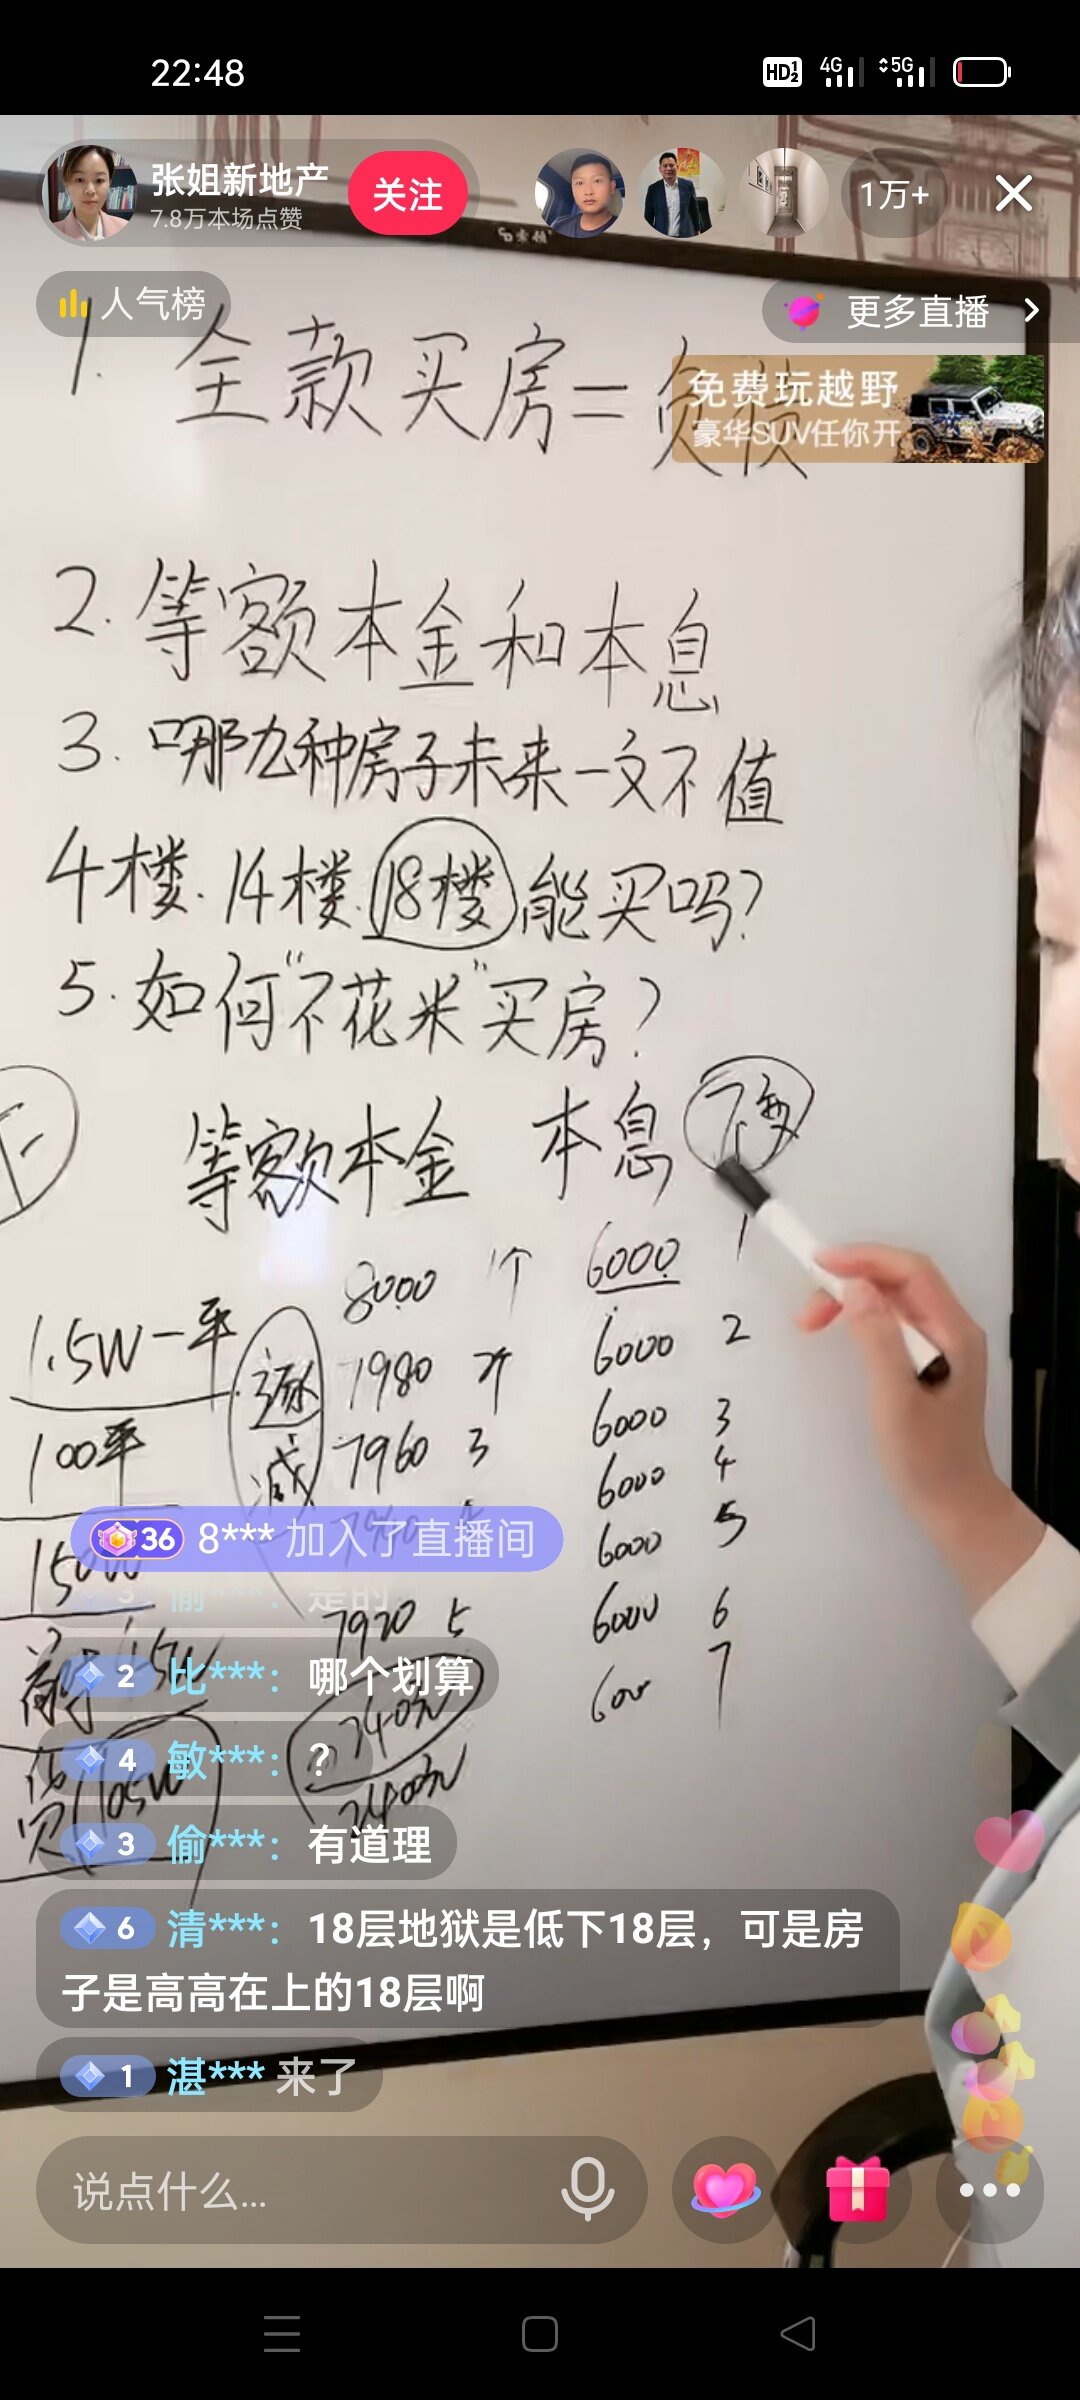 22:48
HD 1 2 4G 5G
张姐新地产
7.8万本场点赞
关注
1万+
人气榜
更多直播
免费玩越野
豪华SUV任你开
1. 全款买房=负债
2. 等额本金和本息
3. 哪九种房子未来一文不值
4楼.14楼.18楼能买吗?
5.如何"不花米"买房?
等额本金 本息
8000 1个 6000 1
1.5W一平
递减
7980 2个 6000 2
100平
7960 3 6000 3
6000 4
150W
6000 5
7920 5 6000 6
7
105W
36 8*** 加入了直播间
3 偷***: 是的
2 比***: 哪个划算
4 敏***: ?
3 偷***: 有道理
6 清***: 18层地狱是低下18层，可是房
子是高高在上的18层啊
1 湛*** 来了
说点什么...